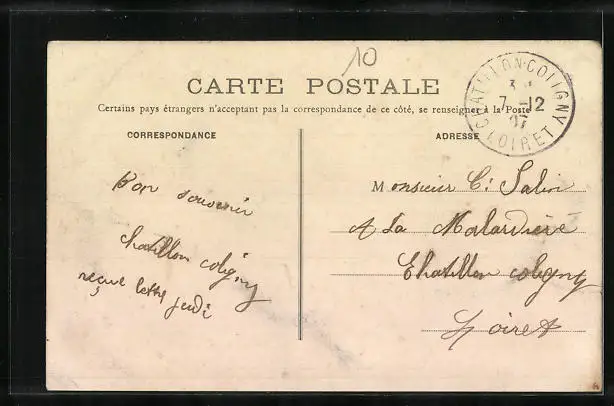 10
CARTE POSTALE
Certains pays étrangers n'acceptant pas la correspondance de ce côté, se renseigner à la Poste
CORRESPONDANCE
ADRESSE
CHATILLON-COLIGNY
7 -12
07
LOIRET
Bon souvenir
Chatillon coligny
reçue lettre jeudi
Monsieur C. Salin
A La Malardière
Chatillon coligny
Loiret